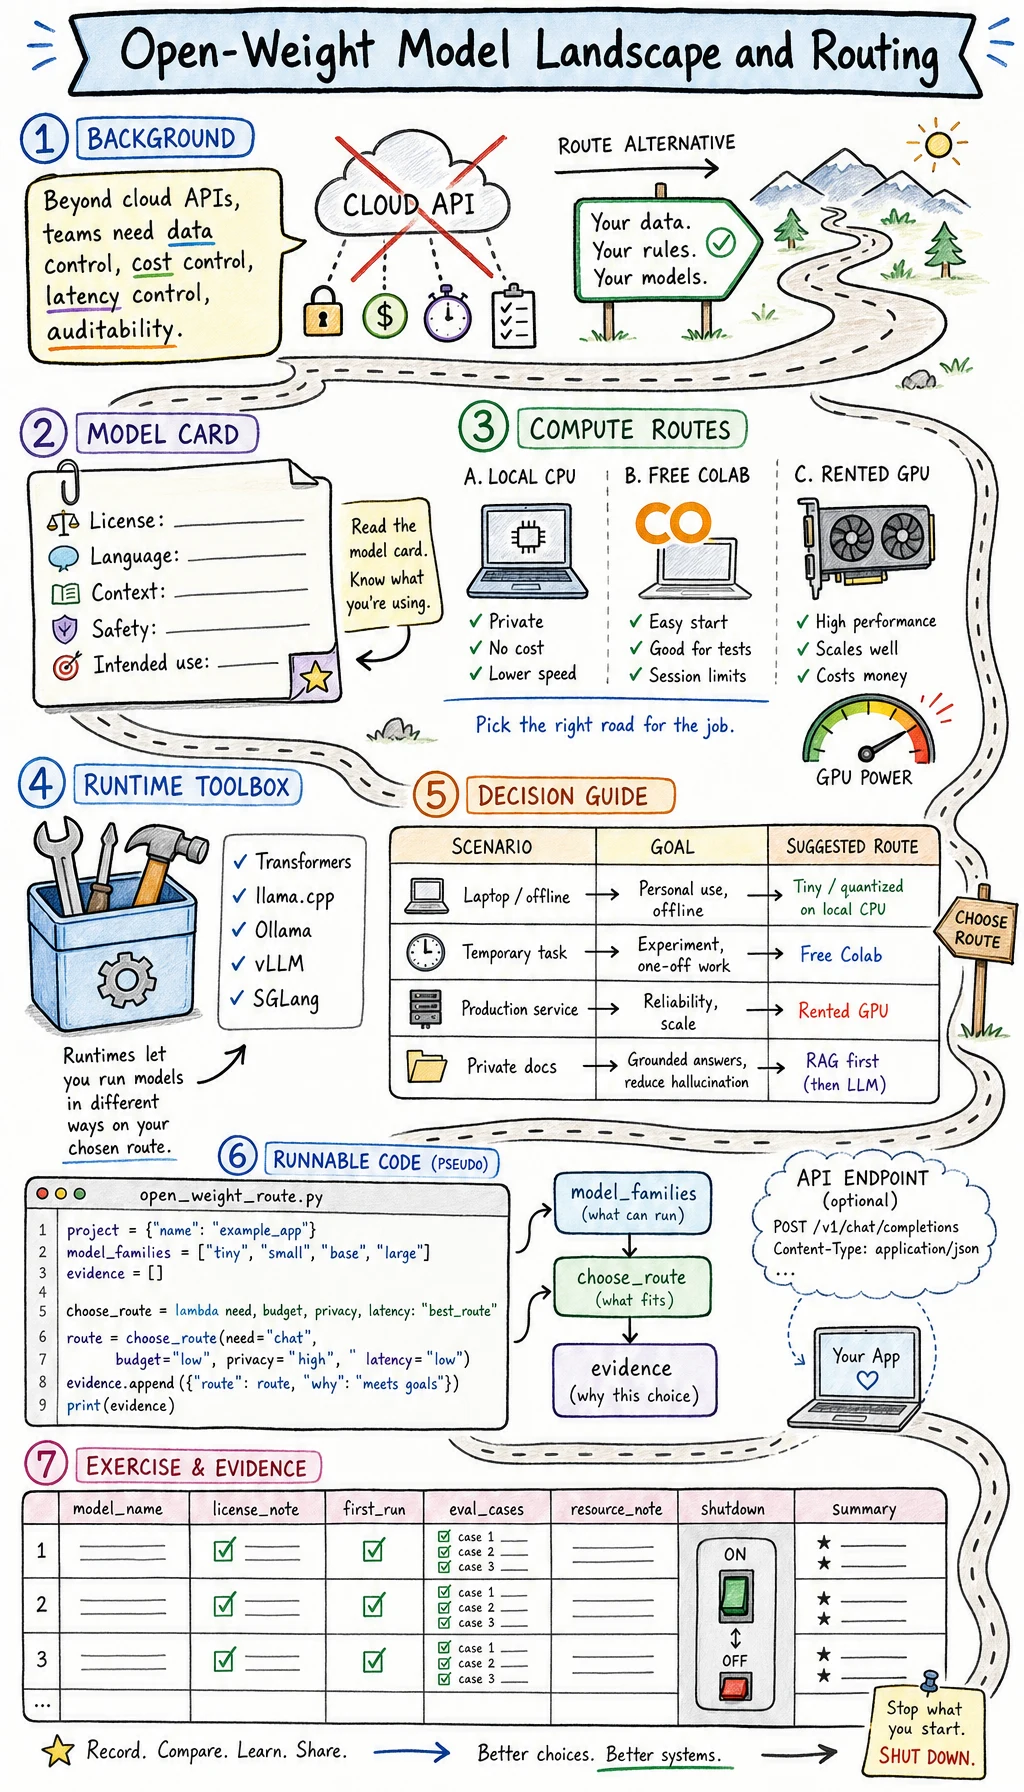 Open-Weight Model Landscape and Routing
1 BACKGROUND
Beyond cloud APIs,
teams need data
control, cost control,
latency control,
auditability.
CLOUD API
$
ROUTE ALTERNATIVE
Your data.
Your rules.
Your models.
2 MODEL CARD
License:
Language:
Context:
Safety:
Intended use:
Read the
model card.
Know what
you're using.
3 COMPUTE ROUTES
A. LOCAL CPU
✓ Private
✓ No cost
✓ Lower speed
B. FREE COLAB
CO
✓ Easy start
✓ Good for tests
✓ Session limits
C. RENTED GPU
✓ High performance
✓ Scales well
✓ Costs money
Pick the right road for the job.
GPU POWER
4 RUNTIME TOOLBOX
✓ Transformers
✓ llama.cpp
✓ Ollama
✓ vLLM
✓ SGLang
Runtimes let
you run models
in different
ways on your
chosen route.
5 DECISION GUIDE
SCENARIO GOAL SUGGESTED ROUTE
Laptop / offline → Personal use, offline → Tiny / quantized on local CPU
Temporary task → Experiment, one-off work → Free Colab
Production service → Reliability, scale → Rented GPU
Private docs → Grounded answers, reduce hallucination → RAG first (then LLM)
CHOOSE
ROUTE
6 RUNNABLE CODE (PSEUDO)
open_weight_route.py
1 project = {"name": "example_app"}
2 model_families = ["tiny", "small", "base", "large"]
3 evidence = []
4
5 choose_route = lambda need, budget, privacy, latency: "best_route"
6 route = choose_route(need="chat",
7 budget="low", privacy="high", " latency="low")
8 evidence.append({"route": route, "why": "meets goals"})
9 print(evidence)
model_families
(what can run)
choose_route
(what fits)
evidence
(why this choice)
API ENDPOINT
(optional)
POST /v1/chat/completions
Content-Type: application/json
...
Your App
7 EXERCISE & EVIDENCE
model_name license_note first_run eval_cases resource_note shutdown Summary
1
case 1
case 2
case 3
2
case 1
case 2
case 3
3
case 1
case 2
case 3
...
ON
OFF
Stop what
you start.
SHUT DOWN.
Record. Compare. Learn. Share. → Better choices. Better systems. →